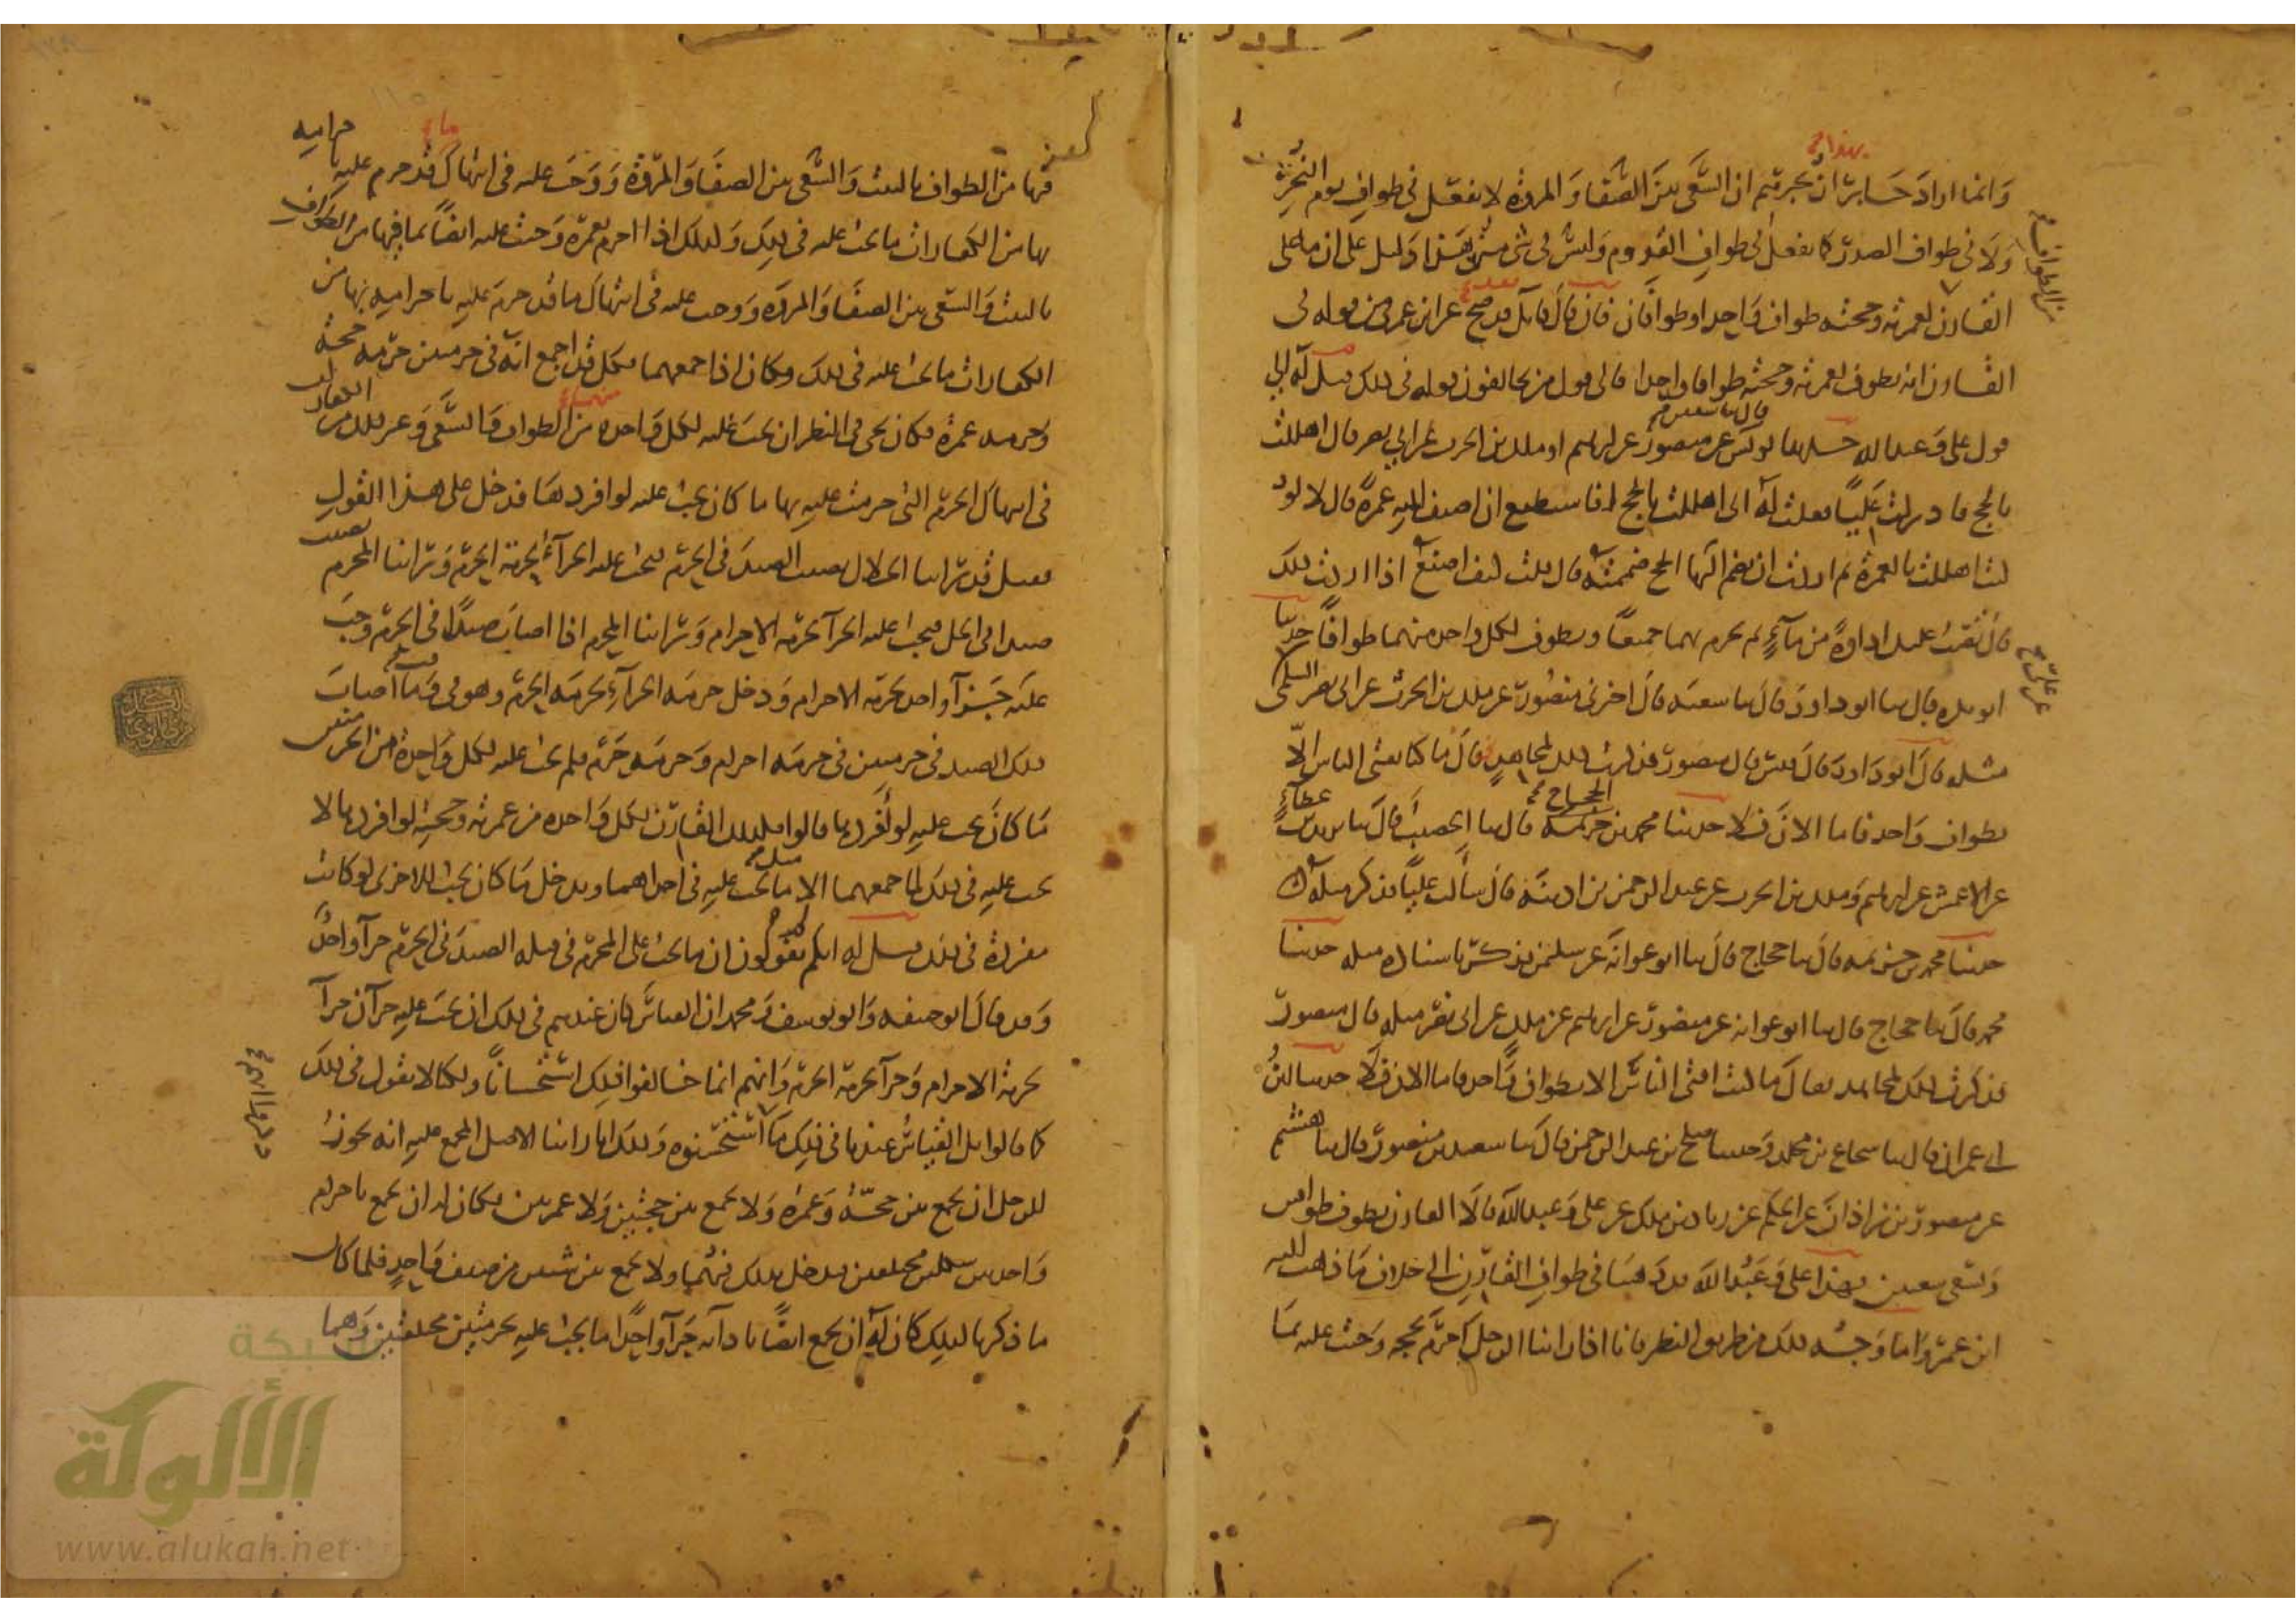 وانما اراد جابر ان يخبرهم ان السعى بين الصفا والمروة لا يفعل فى طواف يوم النحر
ولا فى طواف الصدر كما يفعل فى طواف القدوم وليس فى شى من هذا دليل على ان ما على
القارن لعمرته وحجته طواف واحد او طوافان فان قال قايل قد صح عن ابن عمر من قوله فى
القارن انه يطوف لعمرته وحجته طوافا واحدا فالى قول من تخالفون قوله فى ذلك قيل له الى
قول على وعبد الله حدثنا يونس عن منصور عن ابرهيم او ملك بن الحرث عن ابى نصر قال اهللت
بالحج فادركت عليا فقلت له انى اهللت بالحج افاستطيع ان اضيف اليه عمرة قال لا لو
كنت اهللت بالعمرة ثم اردت ان تضم اليها الحج ضممته قال قلت كيف اصنع اذا اردت ذلك
قال تصب عليك اداوة من ماء ثم تحرم بهما جميعا وتطوف لكل واحدة منهما طوافا حدثنا
ابو بكرة قال ثنا ابو داود قال ثنا شعبة قال اخبرنى منصور عن ملك بن الحرث عن ابى نصر السلمى
مثله قال ابو داود قال قال منصور فذكرت ذلك لمجاهد قال ما كنا نفتى الناس الا
بطواف واحد فاما الان فلا حدثنا محمد بن خزيمة قال ثنا الحجاج قال ثنا بن عطاء
عن الاعمش عن ابرهيم وملك بن الحرث عن عبد الرحمن بن اذينة قال سالت عليا فذكر مثله
حدثنا محمد بن خزيمة قال ثنا حجاج قال ثنا ابو عوانة عن سليمن فذكر باسناده مثله حدثنا
محمد قال ثنا حجاج قال ثنا ابو عوانة عن منصور عن ابرهيم عن ملك عن ابى نصر مثله قال منصور
فذكرت ذلك لمجاهد فقال ما كنت افتى الناس الا بطواف واحد فاما الان فلا حدثنا ابن
ابى عمران قال ثنا شجاع بن مخلد وحدثنا صلح بن عبد الرحمن قال ثنا سعيد بن منصور قال ثنا هشيم
عن منصور بن زاذان عن الحكم عن زياد بن ملك عن على وعبد الله قالا القارن يطوف طوافين
ويسعى سعيين فهذا على وعبد الله قد ذهبا فى طواف القارن الى خلاف ما ذهب اليه
ابن عمر واما وجه ذلك من طريق النظر فانا اذا راينا الرجل اذا احرم بحجة وجبت عليه بما
فيها من الطواف بالبيت والسعى بين الصفا والمروة ووجب عليه فى انتهاك ما قد حرم عليه باحرامه
بها من الكفارات ما يجب عليه فى ذلك وكذلك اذا احرم بعمرة وجبت عليه ايضا بما فيها من الطواف
بالبيت والسعى بين الصفا والمروة ووجب عليه فى انتهاك ما قد حرم عليه باحرامه بها من
الكفارات ما يجب عليه فى ذلك وكان اذا جمعهما فكل قد اجمع انه فى حرمتين حرمة حجة
وحرمة عمرة فكان يجى فى النظر ان يجب عليه لكل واحدة من الطواف والسعى وغير ذلك من الكفارات
فى انتهاك الحرم التى حرمت عليه بها ما كان يجب عليه لو افردها فدخل على هذا القول
فقيل قد راينا الحلال يصيب الصيد فى الحرم فيجب عليه الجزاء لحرمة الحرم وراينا المحرم يصيب
صيدا فى الحل فيجب عليه الجزاء لحرمة الاحرام وراينا المحرم اذا اصاب صيدا فى الحرم وجب
عليه جزاء واحد لحرمة الاحرام ودخل حرمة الجزاء لحرمة الحرم وهو فى وقت ما اصاب
ذلك الصيد فى حرمتين فى حرمة احرام وحرمة حرم فلم يجب عليه لكل واحدة من الحرمتين
ما كان يجب عليه لو افردها قالوا فكذلك القارن لكل واحدة من عمرته وحجته لو افردها لا
يجب عليه فى ذلك لما جمعهما الا مثل ما يجب عليه فى احداهما ويدخل ما كان يجب للاخرى لو كانت
مفردة فى ذلك قيل له انكم تقولون ان ما يجب على المحرم فى قتله الصيد فى الحرم جزاء واحد
وقد قال ابو حنيفة وابو يوسف ومحمد ان القياس كان عندهم فى ذلك ان يجب عليه جزآن جزاء
لحرمة الاحرام وجزاء لحرمة الحرم وانهم انما خالفوا ذلك استحسانا ولكنا لا نقول فى ذلك
كما قالوا بل القياس عندنا فى ذلك ما استحسنوه وذلك انا راينا الاصل المجمع عليه انه يجوز
للرجل ان يجمع بين حجة وعمرة ولا يجمع بين حجتين ولا عمرتين فكان له ان يجمع باحرام
واحد بين شكلين مختلفين فيدخل بذلك فيهما ولا يجمع بين شيئين من صنف واحد فلما كان
ما ذكرنا كذلك كان له ان يجمع ايضا بادائه جزاء واحدا ما يجب عليه بحرمتين مختلفتين وهما
شبكة
الألوكة
www.alukah.net